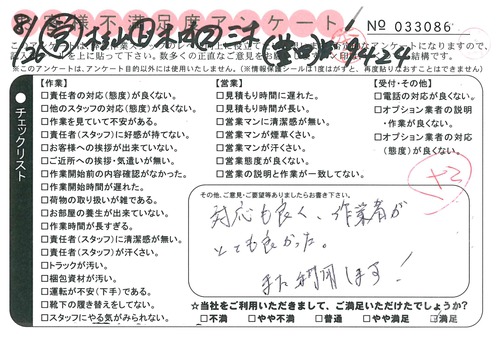 お客様不満足度アンケート
No 033086
8/26
4424
チェックリスト
【作業】
□責任者の対応(態度)が良くない。
□他のスタッフの対応(態度)が良くない。
□作業を見ていて不安がある。
□責任者(スタッフ)に好感が持てない。
□お客様への挨拶が出来ていない。
□ご近所への挨拶・気遣いが無い。
□作業開始前の内容確認がなかった。
□作業開始時間が遅れた。
□荷物の取り扱いが雑である。
□お部屋の養生が出来ていない。
□作業時間が長すぎる。
□責任者(スタッフ)に清潔感が無い。
□責任者(スタッフ)が汗くさい。
□トラックが汚い。
□梱包資材が汚い。
□運転が不安(下手)である。
□靴下の履き替えをしてない。
□スタッフにやる気がみられない。
【営業】
□見積もり時間に遅れた。
□見積もり時間が長い。
□営業マンに清潔感が無い。
□営業マンが煙草くさい。
□営業マンが汗くさい。
□営業態度が良くない。
□営業の説明と作業が一致してない。
【受付・その他】
□電話の対応が良くない。
□オプション業者の説明
・作業が良くない。
□オプション業者の対応
(態度)が良くない。
+2
その他、ご意見・ご要望等ありましたらお書き下さい。
対応も良く、作業者が
とても良かった。
また利用します!
☆当社をご利用いただきまして、ご満足いただけたでしょうか?
□不満 □やや不満 □普通 □やや満足 □満足